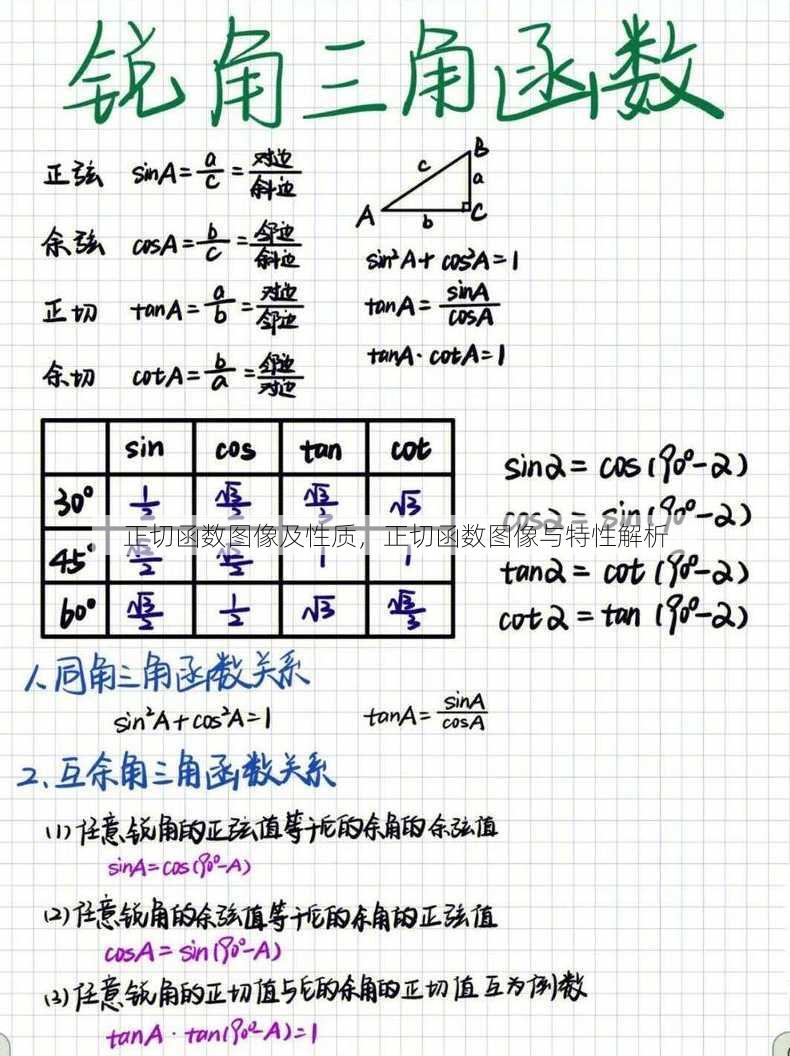 锐角三角函数
正弦 sinA=a/c=对边/斜边
余弦 cosA=b/c=邻边/斜边
正切 tanA=a/b=对边/邻边
余切 cotA=b/a=邻边/对边
B
c a
A b C
sin²A+cos²A=1
tanA=sinA/cosA
tanA·cotA=1
sin cos tan cot
30° 1/2 √3/2 √3/3 √3
45° √2/2 √2/2 1 1
60° √3/2 1/2 √3 √3/3
sinα=cos(90°-α)
cosα=sin(90°-α)
tanα=cot(90°-α)
cotα=tan(90°-α)
正切函数图像及性质，正切函数图像与特性解析
1、同角三角函数关系
sin²A+cos²A=1 tanA=sinA/cosA
2、互余角三角函数关系
(1)任意锐角的正弦值等于它的余角的余弦值
sinA=cos(90°-A)
(2)任意锐角的余弦值等于它的余角的正弦值
cosA=sin(90°-A)
(3)任意锐角的正切值与它的余角的正切值互为倒数
tanA·tan(90°-A)=1